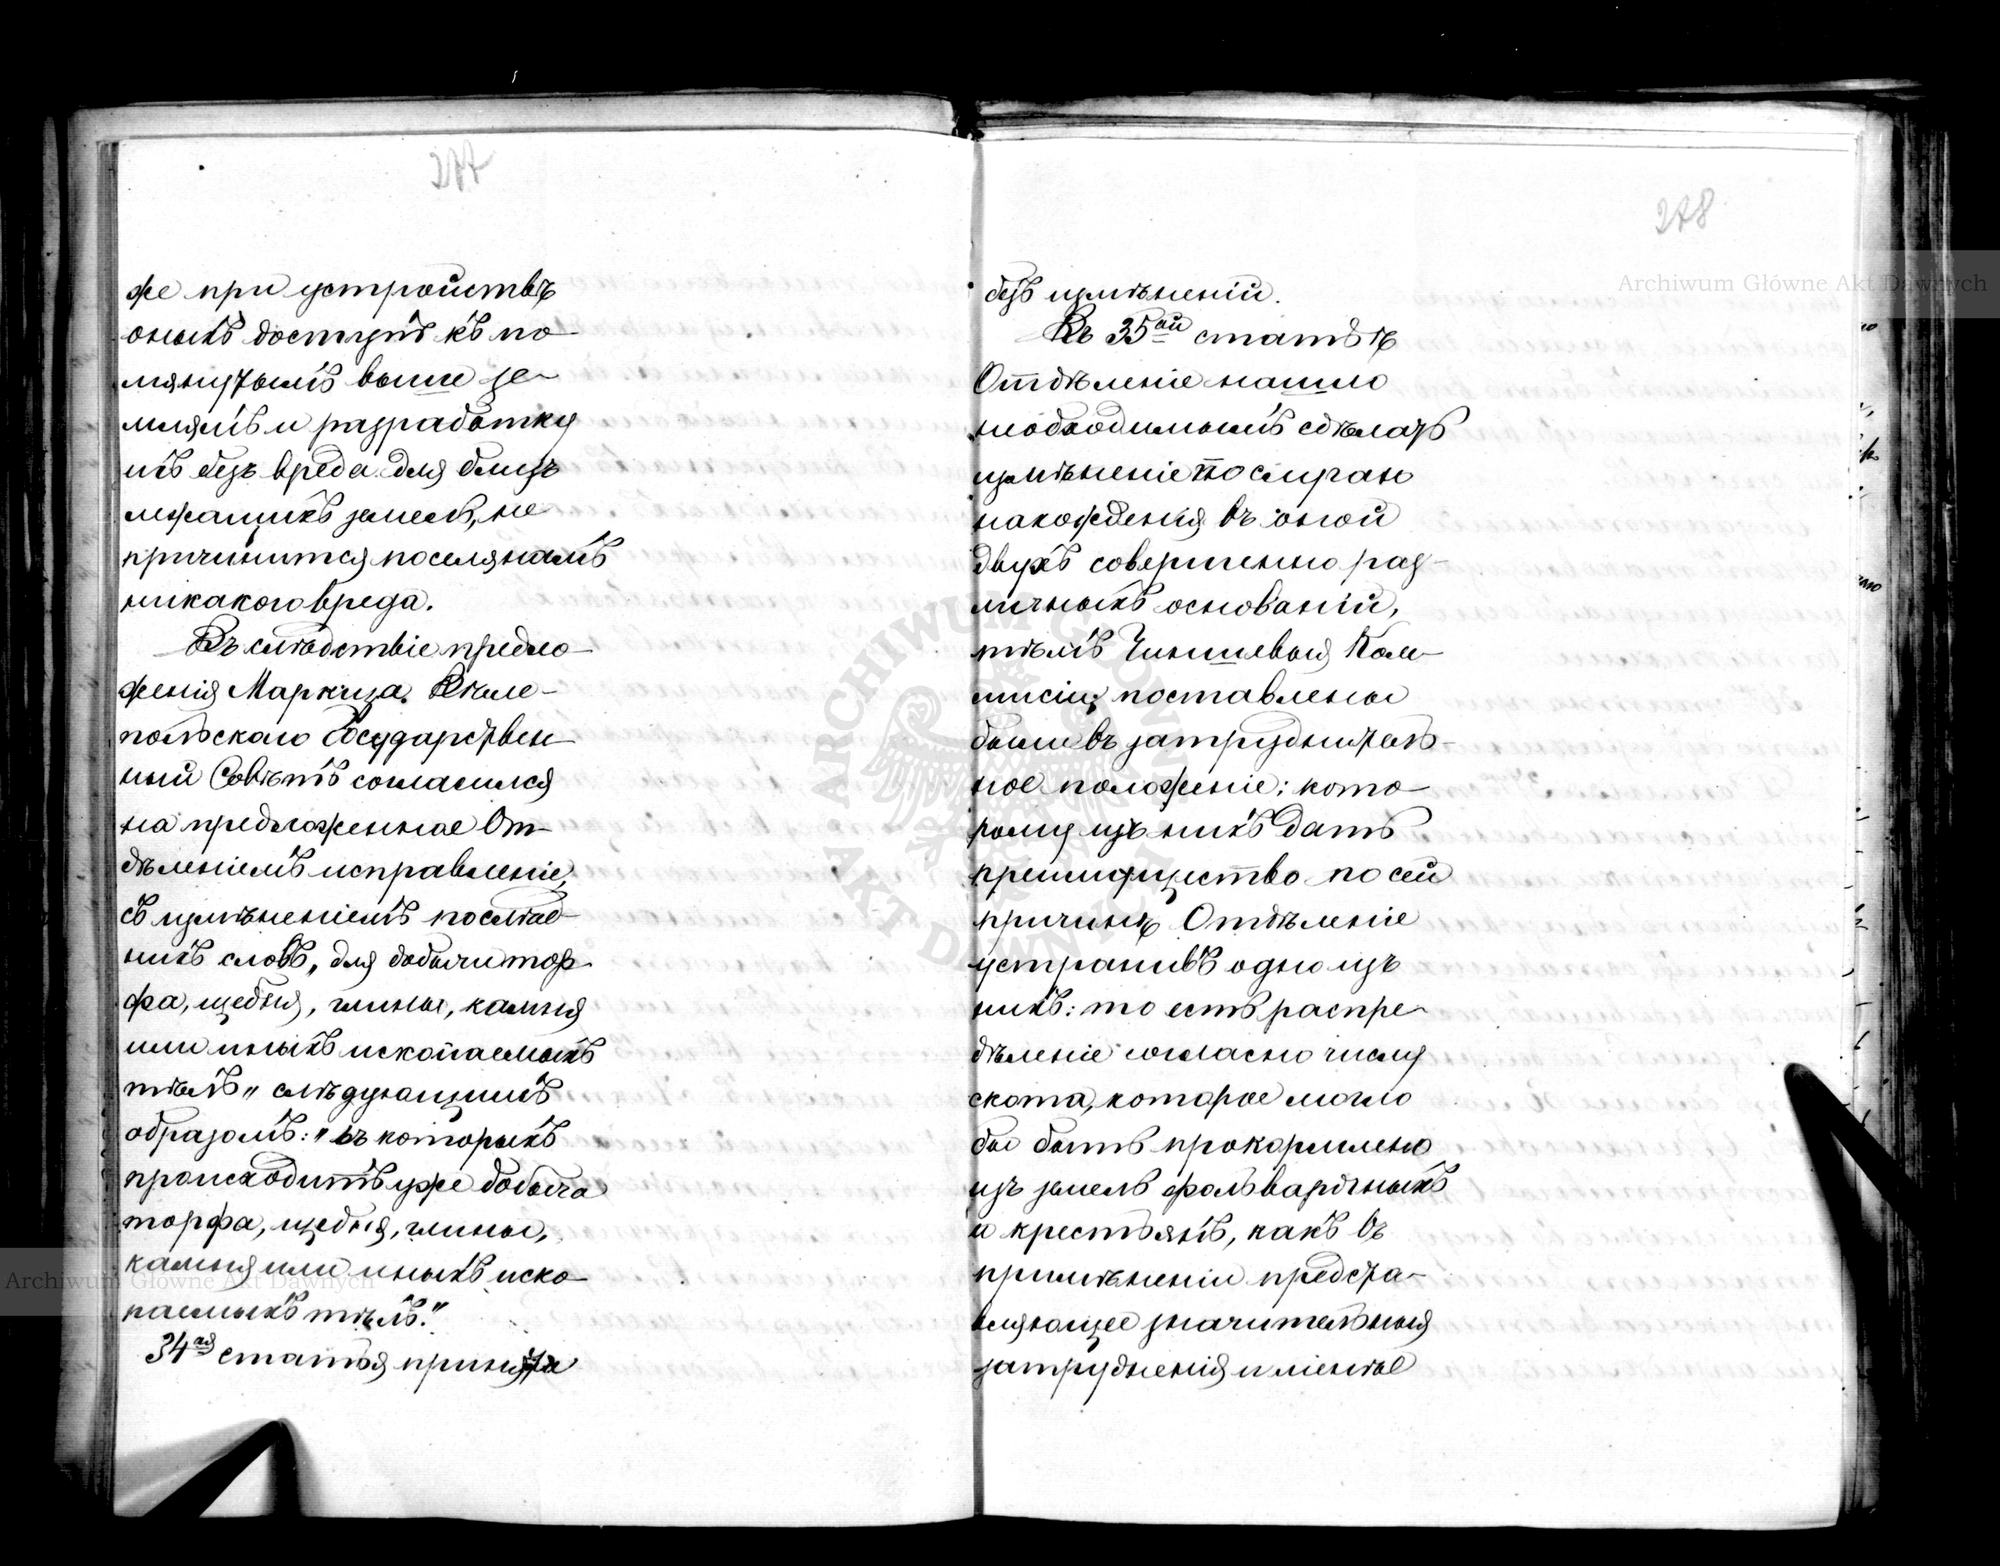 277
же при устройствѣ
оныхъ доступъ къ по-
мянутымъ выше зе-
млямъ и разработку
ихъ безъ вреда для близъ
лежащихъ земель, не
причинится поселянамъ
никакого вреда.
Въ слѣдствіе предло-
женія Маркиза Вѣле-
польскаго Государствен-
ный Совѣтъ согласился
на предложенное От-
дѣленіемъ исправленіе,
съ измѣненіемъ послѣд-
нихъ словъ „для добычи тор-
фа, щебня, глины, камня
или иныхъ ископаемыхъ
тѣлъ" слѣдующимъ
образомъ: "въ которыхъ
происходитъ уже добыча
торфа, щебня, глины,
камня или иныхъ иско-
паемыхъ тѣлъ."
34ая статья принята
278
безъ измѣненій.
Въ 35ой статьѣ
Отдѣленіе нашло
необходимымъ сдѣлать
измѣненіе по случаю
нахожденія въ оной
двухъ совершенно раз-
личныхъ основаній,
тѣмъ Чиншевыя Ком-
мисіи поставлены
были въ затруднитель-
ное положеніе: кото-
рому изъ нихъ дать
преимущество по сей
причинѣ Отдѣленіе
устранивъ одно изъ
нихъ: то есть распре-
дѣленіе согласно числу
скота, которое могло
бы быть прокормлено
изъ земель фольварчныхъ
и крестьянъ, какъ въ
примѣненіи предста-
вляющее значительныя
затрудненія и менѣе
Archiwum Główne Akt Dawnych
Archiwum Główne Akt Dawnych
ARCHIWUM GŁÓWNE AKT DAWNYCH